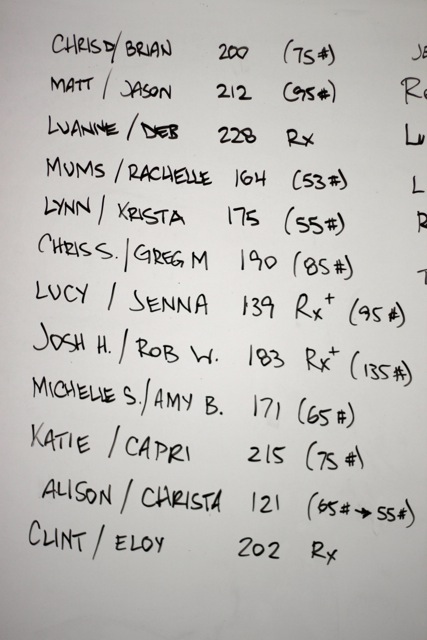 CHRIS D/BRIAN 200 (75#)
MATT / JASON 212 (95#)
LUANNE / DEB 228 Rx
MUMS / RACHELLE 164 (53#)
LYNN / KRISTA 175 (55#)
CHRIS S./GREG M 190 (85#)
LUCY / JENNA 139 Rx+ (95#)
JOSH H. / ROB W. 183 Rx+ (135#)
MICHELLE S./AMY B. 171 (65#)
KATIE / CAPRI 215 (75#)
ALISON / CHRISTA 121 (65#→55#)
CLINT / ELOY 202 Rx